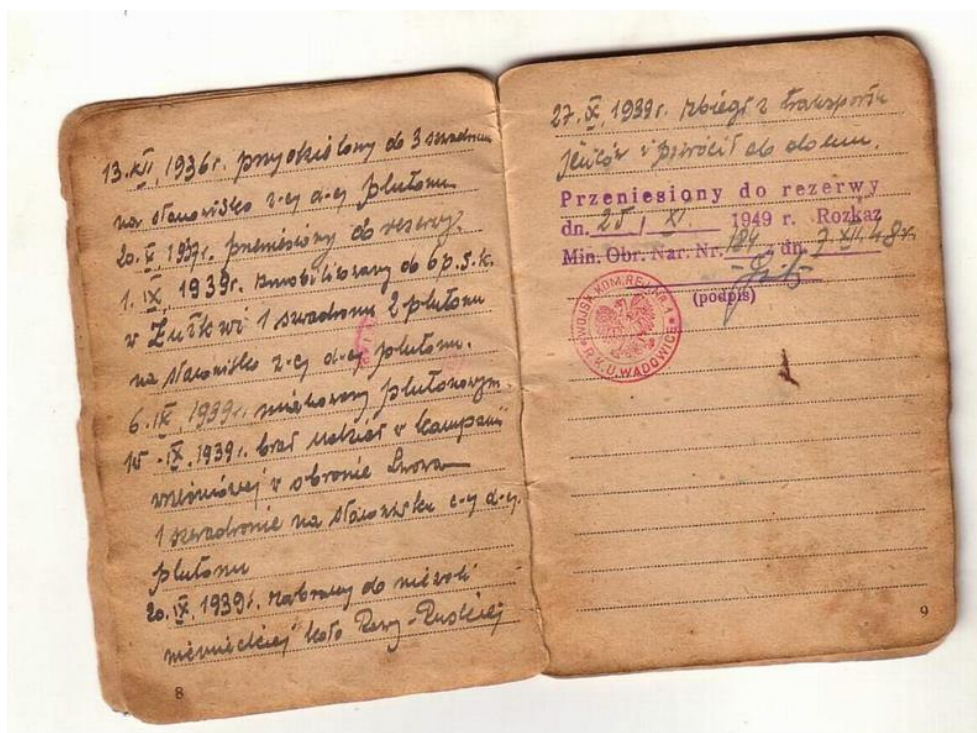 13.XII.1936r. przydzielony do 3 szwadronu
na stanowisko z-cy d-cy plutonu
20.X.1937r. przeniesiony do reserwy.
1.IX.1939r. zmobilizowany do 6 p.s.k.
w Żułkwi 1 szwadronu 2 plutonu
na stanowisko z-cy d-cy plutonu.
6.IX.1939r. mianowany plutonowym.
15-IX.1939r. brał udział w kampanii
wrześniowej w obronie Lwowa
1 szwadronie na stanowisku z-cy d-cy.
plutonu
20.IX.1939r. zabrany do niewoli
niemieckiej koło Rawy-Ruskiej
8
27.X.1939r. zbiegł z transportu
jeńców i powrócił do domu.
Przeniesiony do rezerwy
dn. 25/XI 1949 r. Rozkaz
Min. Obr. Nar. Nr. 184 z dn. 7.XII.48r.
(podpis)
WOJSK.KOM.REJ.KR.1
R.K.U.WADOWICE
9